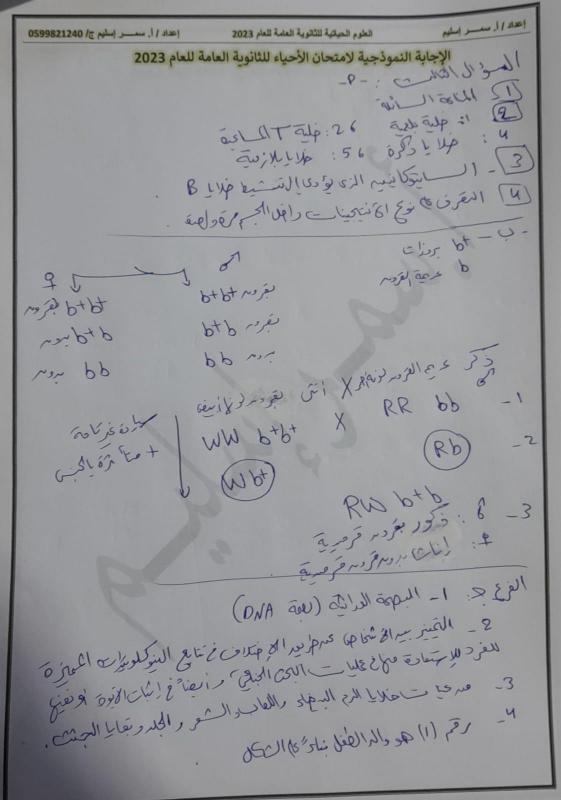 إعداد / أ. سمـــر إسليم
العلوم الحياتية للثانوية العامة للعام 2023
إعداد / أ. سمـــر إسليم ج/ 0599821240
الإجابة النموذجية لامتحان الأحياء للثانوية العامة للعام 2023
السؤال الثالث :- P-
1 المناعة السائلة
2 1: خلية ملتهمة 2: خلية T المساعدة
4: خلايا ذاكرة 5: خلايا بلازمية
3 - السايتوكاينين الذي يؤدي إلى تنشيط خلايا B
4 التعرف على نوع الأنتيجينات داخل الجسم مرة
ب - b+ بروزات
b عديمة القرون
♂ ♀
بقرون b+b+ b+b+ بقرون
بقرون b+b b+b بدون
بدون bb bb بدون
ذكر عديم القرون لونه أحمر X أنثى بقرون لونها أبيض
1- ♂ RR bb X WW b+b+
سيادة غير تامة
+ متأثرة بالجنس
2- Rb Wb+
RW b+b
3- ♂: ذكور بقرون قرمزية
♀: إناث بدون قرون قرمزية
الفرع ج: 1- البصمة الوراثية (بصمة DNA)
2- التمييز بين الأشخاص عن طريق الاختلاف في تتابع النيوكليوتيدات المميزة
للفرد للاستفادة منها في عمليات البحث الجنائي، وأيضاً في إثبات الأبوة أو نفيها
3- من عينات خلايا الدم البيضاء واللعاب والشعر والجلد وبقايا الجثث.
4- رقم (1) هو والد الطفل بناءً على الشكل
إسليم